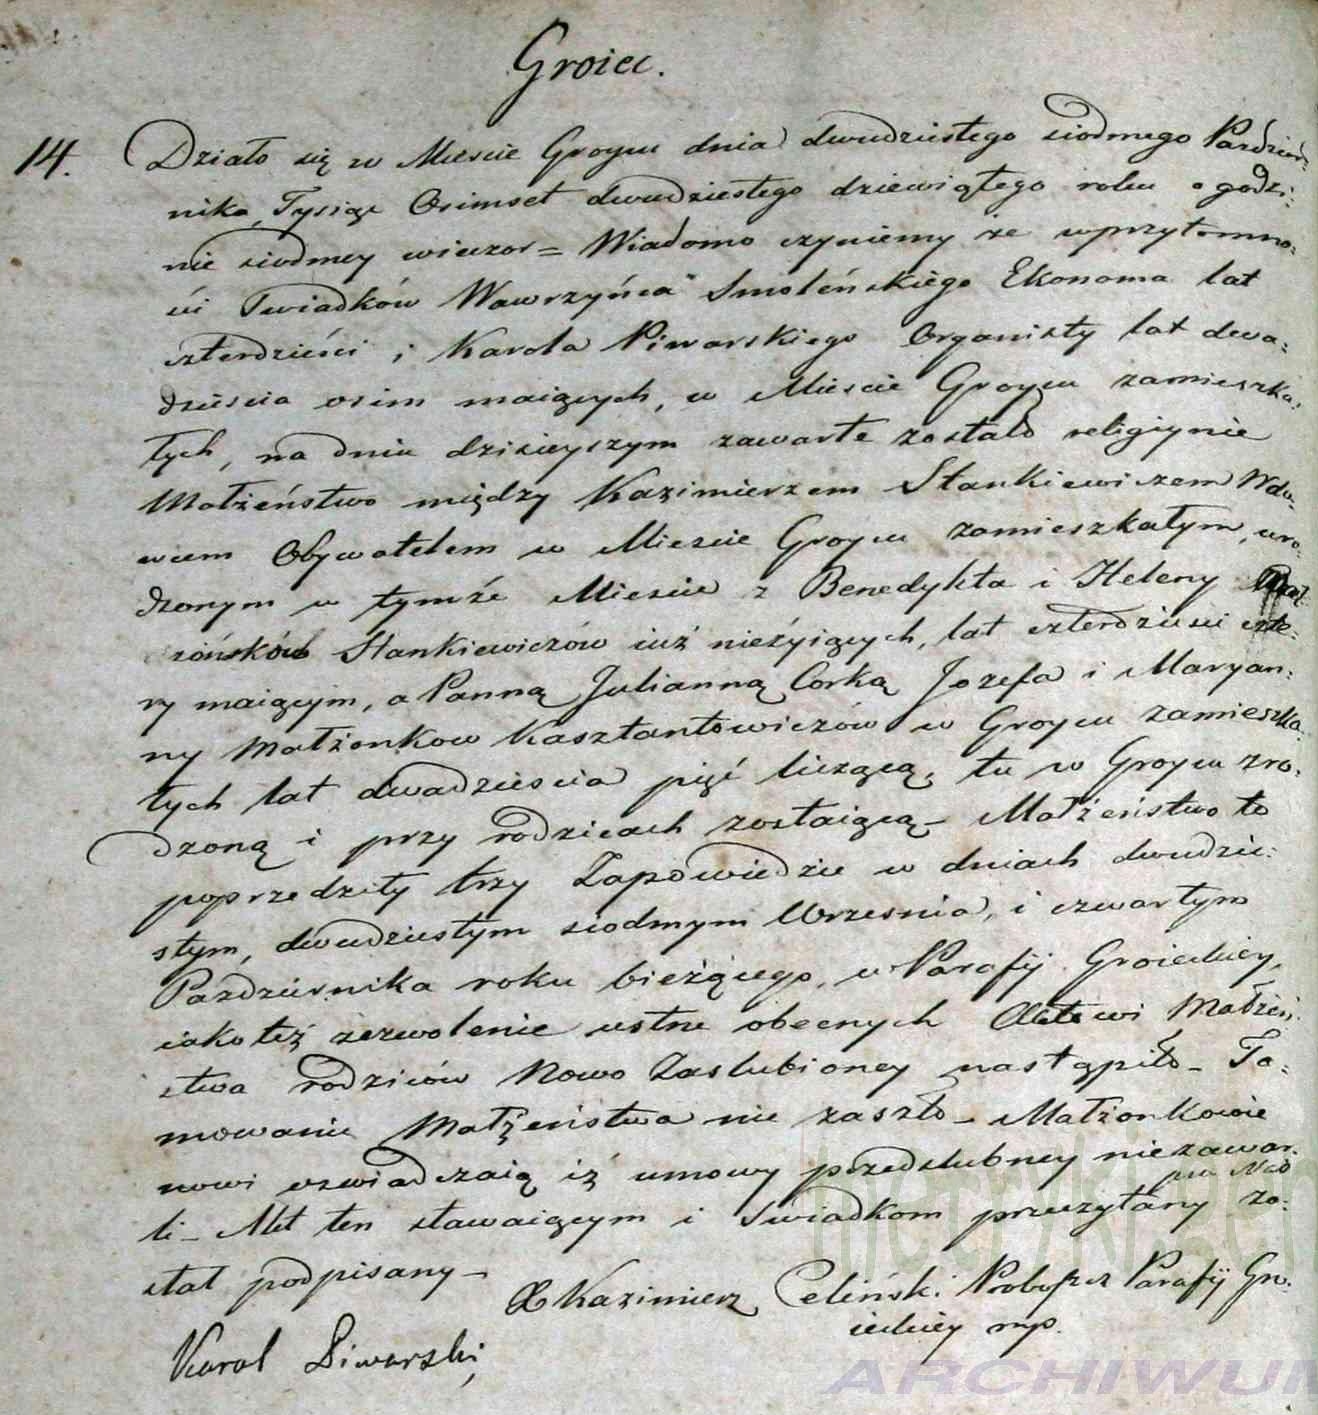 Groiec.
14. Działo się w Miescie Groycu dnia dwudziestego siodmego Pazdzier-
nika, Tysiąc Osimset dwudziestego dziewiątego roku o godzi-
nie siodmey wieczor = Wiadomo czyniemy że w przytomno-
ści Swiadków Wawrzyńca Smoleńskiego Ekonoma lat
czterdzieści i Karola Piwarskiego Organisty lat dwa-
dzieścia osim maiących, w Mieście Groycu zamieszka-
łych, na dniu dzisieyszym zawarte zostało religiynie
Małżeństwo między Kazimierzem Stankiewiczem Wdo-
wcem Obywatelem w Mieście Groycu zamieszkałym, uro-
dzonym w tymże Mieście z Benedykta i Heleny Małż-
żonków Stankiewiczów iuż nieżyiących, lat czterdzieści czte-
ry maiącym, a Panną Julianną Corką Jozefa i Maryan-
ny Małżonkow Kasztantowiczów w Groycu zamieszka-
łych lat dwadzieścia pięć liczącą, tu w Groycu zro-
dzoną i przy rodzicach zostaiącą – Małżeństwo to
poprzedziły trzy Zapowiedzie w dniach dwudzie-
stym, dwudziestym siodmym Wrzesnia, i czwartym
Pazdziernika roku bieżącego, w Parafij Groieckiey,
iakoteż zezwolenie ustne obecnych Aktowi Małżeń-
stwa rodziców Nowo Zaslubioney nastąpiło – Ta-
mowanie Małżeństwa nie zaszło – Małżonkowie
nowi oswiadczaią iż umowy przedslubney niezawar-
li – Akt ten stawaiącym i Swiadkom przeczytany przez Nas zo-
stał podpisany –
X Kazimierz Celiński Proboszcz Parafij Gro-
ieckiey mp.
Karol Piwarski
metryki.gen
ARCHIWUM